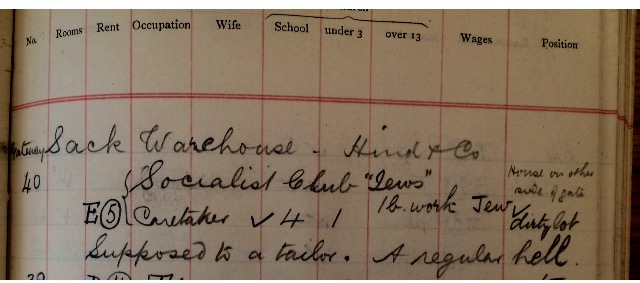 No. Rooms Rent Occupation Wife School under 3 over 13 Wages Position
Gateway Sack Warehouse - Hind & Co
40 Socialist Club "Jews" House on other side of gate
E 5 Caretaker ✓ 4 1 1 b. work Jew ✓ dirty lot
Supposed to a tailor. A regular hell.